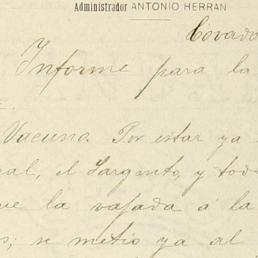 Administrador ANTONIO HERRAN
Covado
Informe para la
Vacuno. Por estar ya
eal, el Sargento, y tod
ue la vajada á la
s; se metio ya al